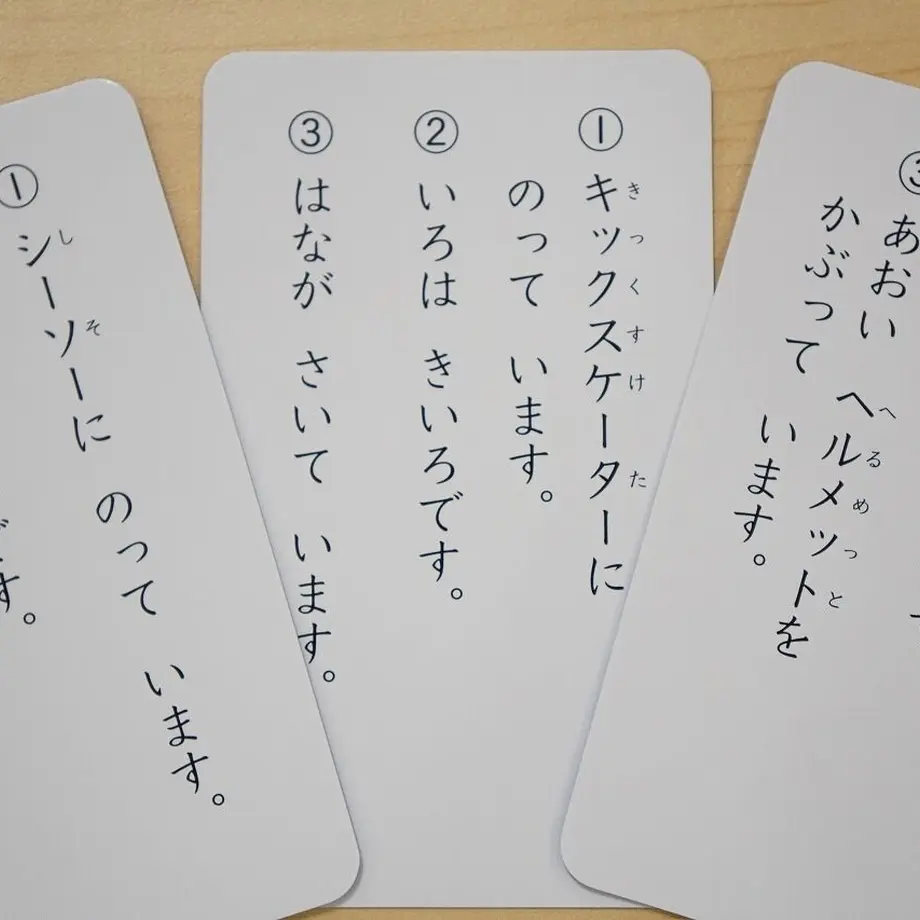 ③ あおい ヘルメットを
へるめっと
かぶって います。
① キックスケーターに
きっくすけた
のって います。
② いろは きいろです。
③ はなが さいて います。
① シーソーに のって います。
しそ
す。